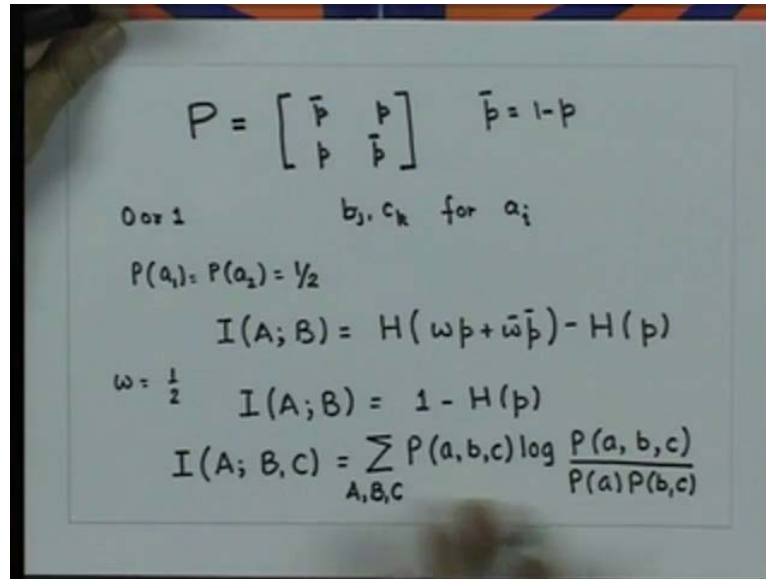 P = [ p̄ p    p̄ = 1-p
p p̄ ]
0 or 1    bⱼ, cₖ for aᵢ
P(a₁) = P(a₂) = 1/2
I(A; B) = H(ωp + ω̄p̄) - H(p)
ω = 1/2    I(A; B) = 1 - H(p)
I(A; B, C) = Σ P(a, b, c) log P(a, b, c)
A,B,C    P(a) P(b,c)